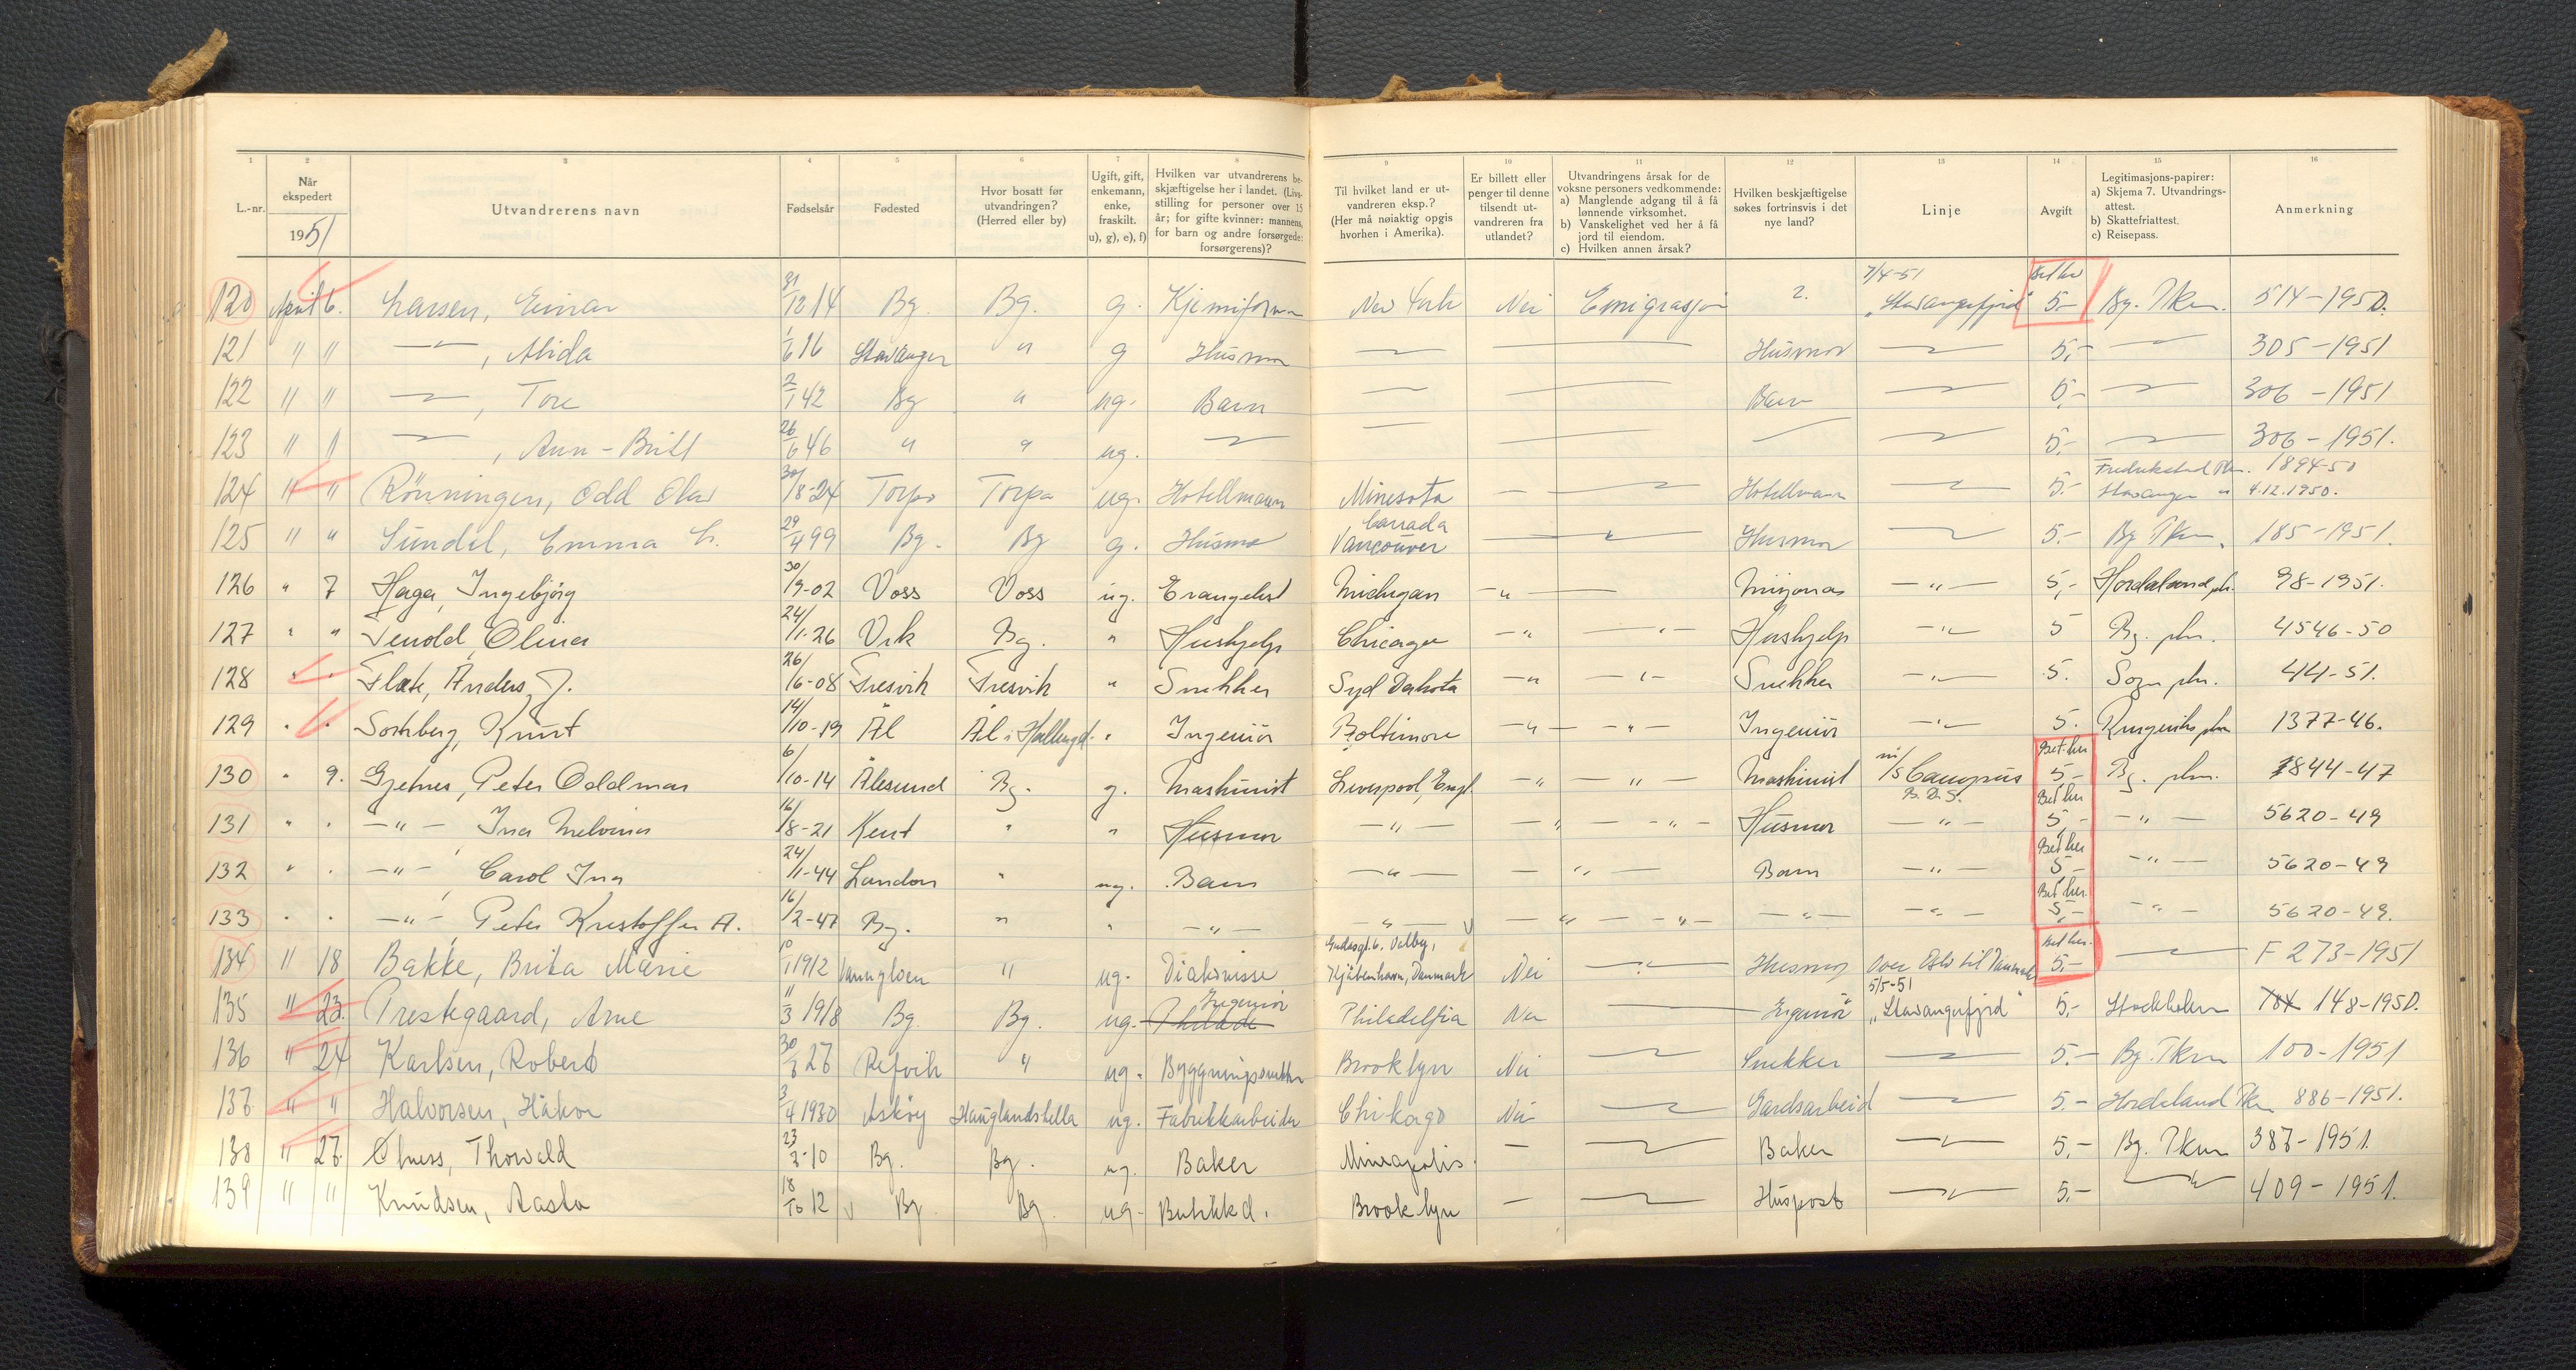 1 2 3 4 5 6 7 8 9 10 11 12 13 14 15 16
L.-nr.
Når ekspedert
1951
Utvandrerens navn
Fødselsår
Fødested
Hvor bosatt før utvandringen? (Herred eller by)
Ugift, gift, enkemann, enke, fraskilt. u), g), e), f)
Hvilken var utvandrerens beskjæftigelse her i landet. (Livsstilling for personer over 15 år; for gifte kvinner: mannens, for barn og andre forsørgede: forsørgerens)?
Til hvilket land er utvandreren eksp.? (Her må nøiaktig opgis hvorhen i Amerika).
Er billett eller penger til denne tilsendt utvandreren fra utlandet?
Utvandringens årsak for de voksne personers vedkommende: a) Manglende adgang til å få lønnende virksomhet. b) Vanskelighet ved her å få jord til eiendom. c) Hvilken annen årsak?
Hvilken beskjæftigelse søkes fortrinsvis i det nye land?
Linje
Avgift
Legitimasjons-papirer: a) Skjema 7. Utvandrings-attest. b) Skattefriattest. c) Reisepass.
Anmerkning
120 April 6. Larsen, Einar 31/12 14 Bg. Bg. g. New York Nei Emigrasjon 2. 7/4-51 „Stavangerfjord" Bet her 5.- Bg. Pkm. 514-1950.
121 " " —"—, Alida 1/6 16 Stavanger " g Husmor Husmor 5,- 305-1951
122 " " —"—, Tore 2/1 42 Bg " ug. Barn Barn 5,- 306-1951
123 " " —"—, Ann-Britt 26/6 46 " " ug. 5,- 306-1951.
124 " " Rönningen, Odd Olav 30/8-24 Torpo Torpo ug. Hotellmann Minesota Hotellmann 5.- Fredrikstad Pkm. 1894-50 Stavanger " 4.12.1950.
125 " " Sundal, Emma L. 29/4 99 Bg. Bg g. Husmor Canada Vancouver Husmor 5.- Bg Pkm. 185-1951.
126 " 7 Haga, Ingebjörg 30/9-02 Voss Voss ug. Evangelist Michigan —"— Misjonær —"— 5,- Hordaland pk. 98-1951.
127 " " Tenold, Olina 24/1-26 Vik Bg. " Hushjelp Chicago —"— —"— Hushjelp —"— 5 Bg. pkm. 4546-50
128 " " Flate, Anders J. 26/6-08 Fresvik Fresvik " Snekker Syd Dakota —"— —"— Snekker —"— 5. Sogn pkm. 44-51.
129 " " Knut 14/10-19 Ål Ål i Hallingd. " Ingeniör Boltimore —"— —"— Ingeniör —"— 5. Ringeriks pkm 1377-46.
130 " 9. Gjelnes, Peter Oddmar 6/10-14 Ålesund Bg. g. Maskinist Liverpool, Engl. —"— —"— Maskinist m/s Campus B.D.S. Bet. her 5,- Bg. pkm. 1844-47
131 " " —"— Ina Melvina 16/8-21 Kent " " Husmor —"— —"— —"— Husmor —"— Bet her 5,- —"— 5620-49
132 " " —"—, Carol Ina 24/1-44 London " ug. Barn —"— —"— Barn —"— Bet her 5- —"— 5620-49
133 " " —"—, Peter Kristoffer A. 16/2-47 Bg. " " —"— —"— —"— —"— —"— —"— Bet. her. 5,- —"— 5620-49.
134 " 18 Bakke, Brita Marie 1912 " ug. Diakonisse 6, Valby, Kjöbenhavn, Danmark Nei Husmor Over Oslo til Danmark Bet her. 5.- F 273-1951
135 " 23. Prestegaard, Arne 11/3 1918 Bg. Bg. ug. Ingeniör Philadelfia Nei Ingeniör 5/5-51 „Stavangerfjord" 5,- Stockholm 784 148-1950.
136 " 24 Karlsen, Robert 30/8 27 Refvik " ug. Byggningssnekker Brooklyn Nei Snekker 5.- Bg. Pkm 100-1951
137 " " Halvorsen, Håkon 3/4 1930 Asköy Hauglandshella ug. Fabrikkarbeider Chikago Nei Gardsarbeid 5.- Hordaland Pkm 886-1951.
138 " 27. Olness, Thorvald 23/2-10 Bg. Bg. ug. Baker Mineapolis. — Baker 5,- Bg. Pkm 387-1951.
139 " " Knudsen, Aasta 18/10 12 Bg. Bg. ug. Butikkd. Brooklyn — Huspost 5,- —"— 409-1951.